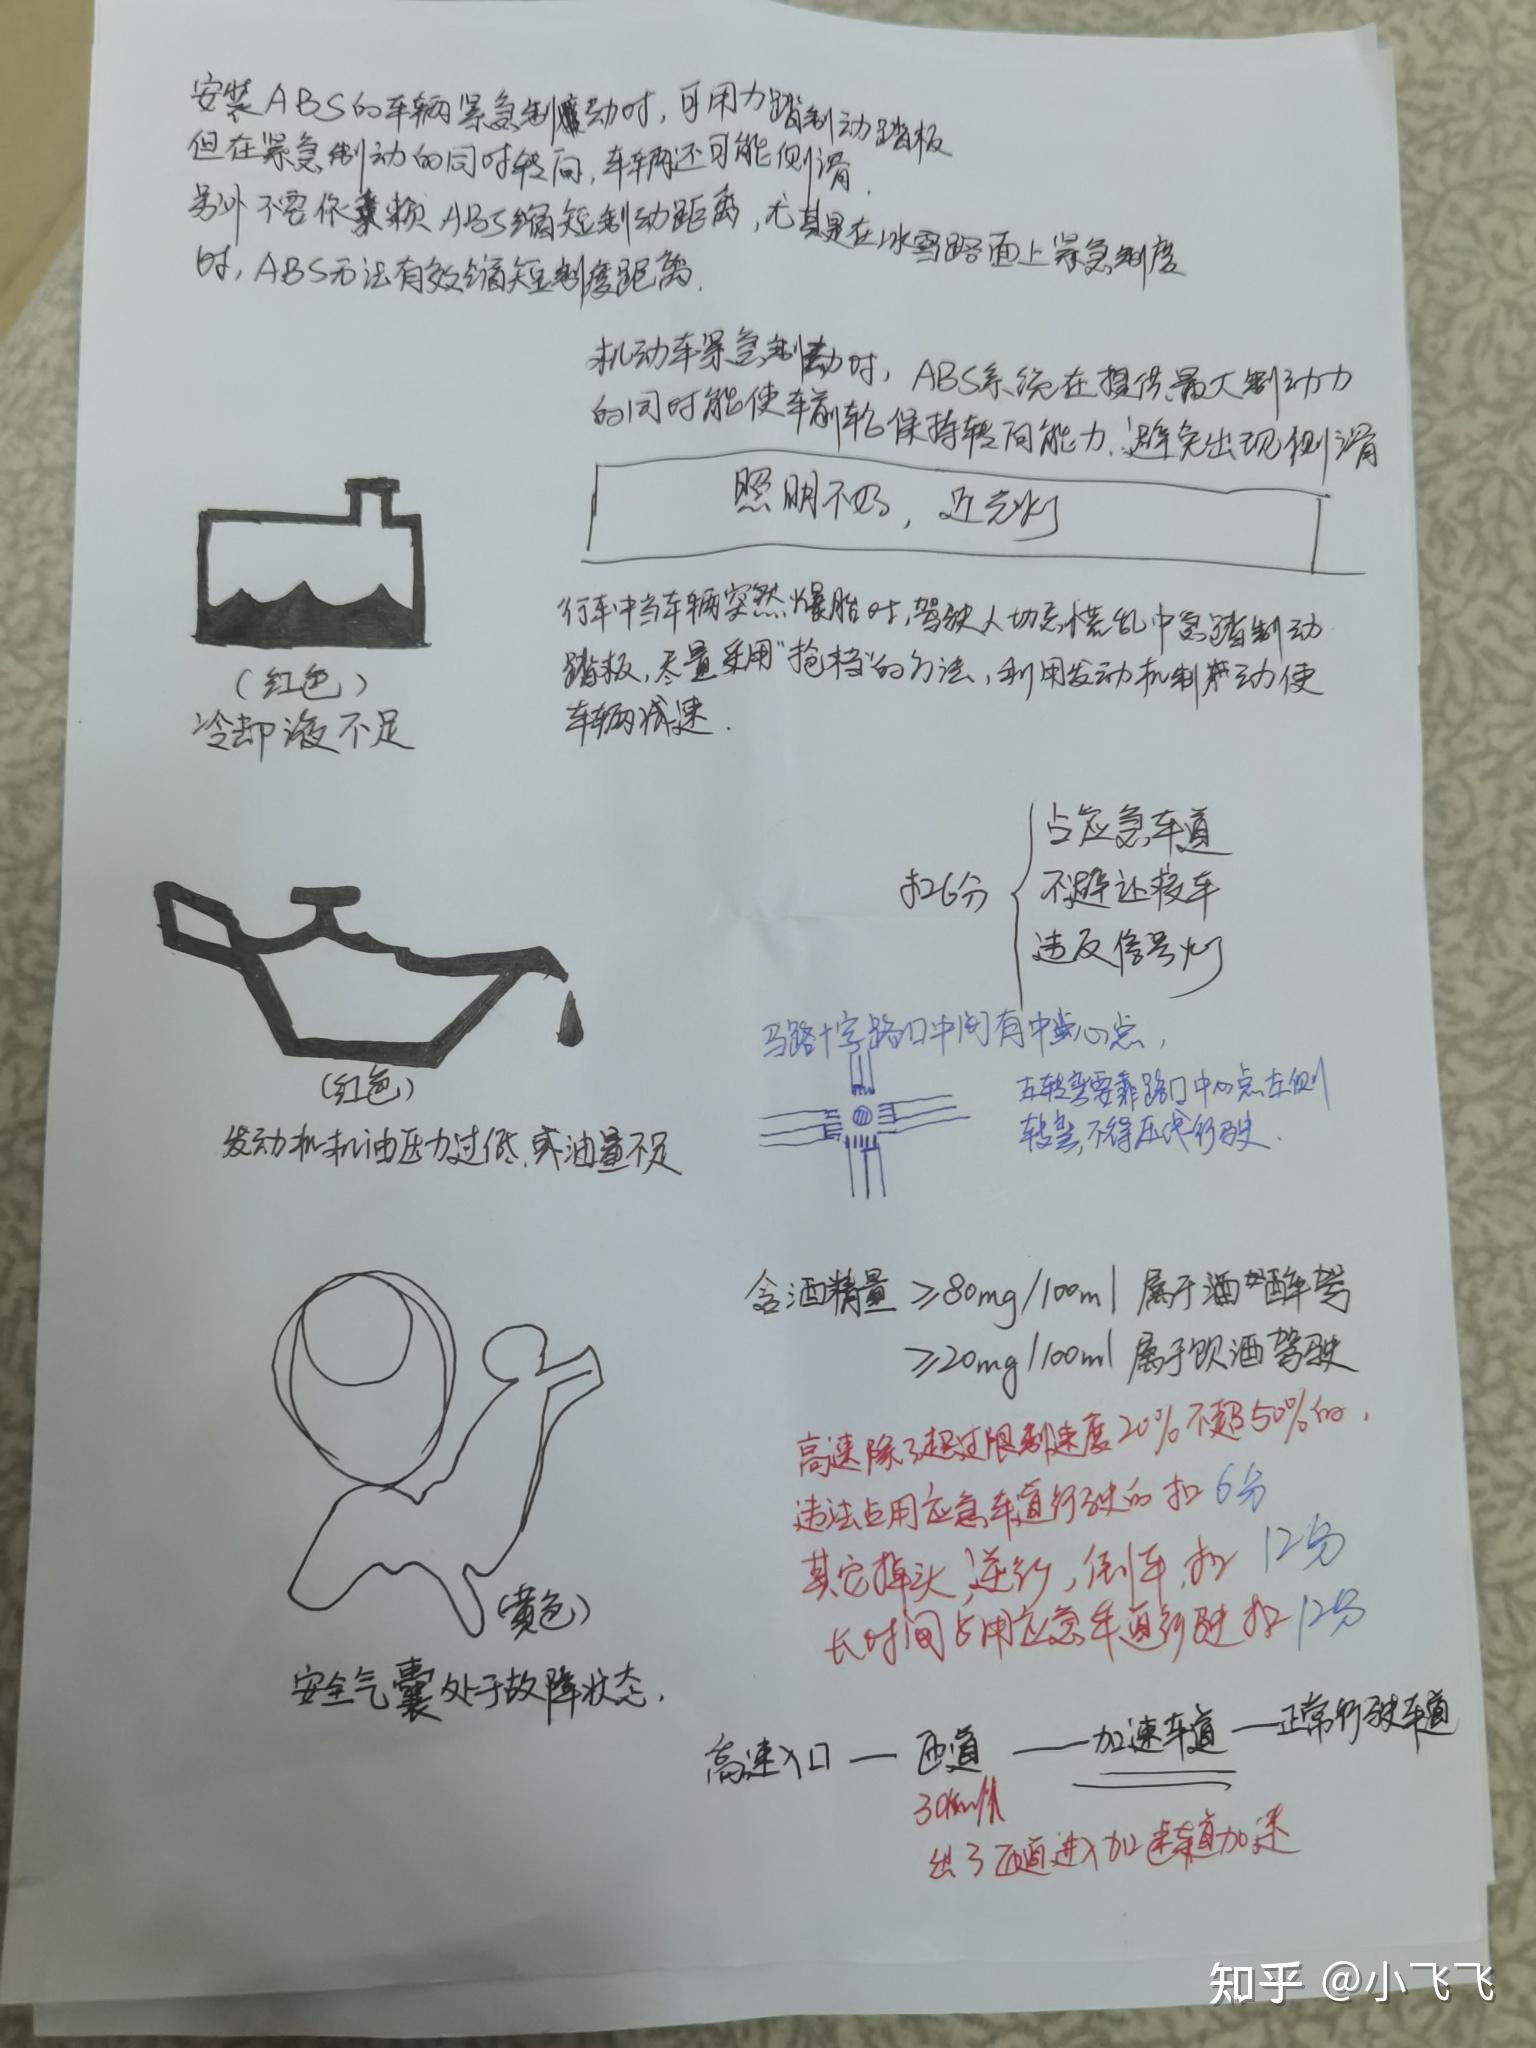 安装ABS的车辆紧急制动时,可用力踏制动踏板
但在紧急制动的同时转向,车辆还可能侧滑.
另外不容依赖ABS缩短制动距离,尤其是在冰雪路面上紧急制度
时,ABS无法有效缩短制度距离.
机动车紧急制动时,ABS系统在提供最大制动力
的同时能使车前轮保持转向能力.避免出现侧滑
照明不好,近光灯
(红色)
冷却液不足
行车中当车辆突然爆胎时,驾驶人切忌慌乱中急踏制动
踏板,尽量采用"抢档"的方法,利用发动机制动使
车辆减速.
扣6分
占应急车道
不避让校车
违反信号灯
(红色)
发动机机油压力过低,或油量不足
马路十字路口中间有中心点,
左转弯要靠路口中心点左侧
转弯,不得压线行驶.
含酒精量 ≥80mg/100ml 属于酒醉驾
≥20mg/100ml 属于饮酒驾驶
高速除了超过限制速度20%不超50%的,
违法占用应急车道行驶的扣6分
其它掉头,逆行,倒车,扣12分
长时间占用应急车道行驶扣12分
(黄色)
安全气囊处于故障状态.
高速入口—匝道—加速车道—正常行驶车道
30km/h
出了匝道进入加速车道加速
知乎 @小飞飞